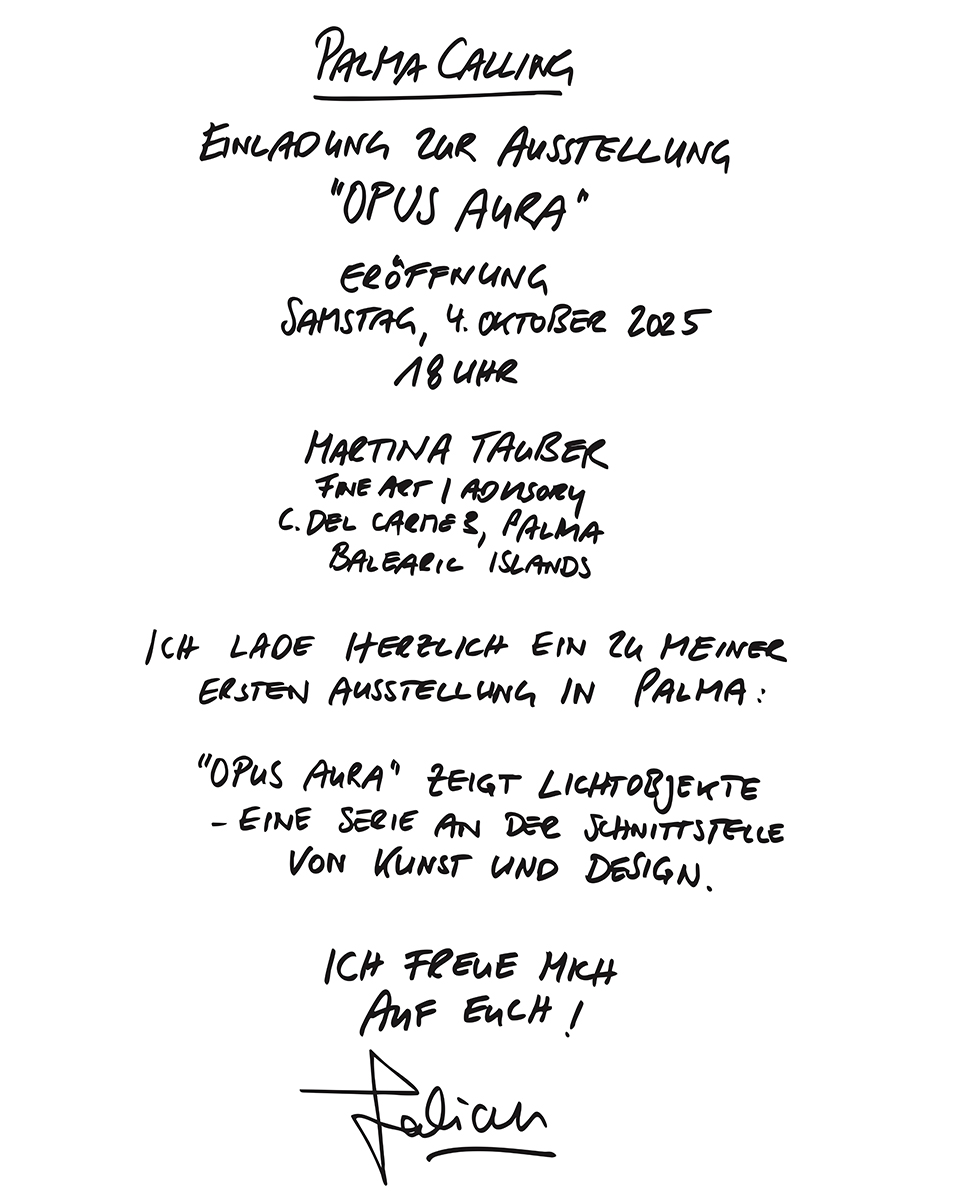 PALMA CALLING
EINLADUNG ZUR AUSSTELLUNG
"OPUS AURA"
ERÖFFNUNG
SAMSTAG, 4. OKTOBER 2025
18 UHR
MARTINA TAUBER
FINE ART | ADVISORY
C. DEL CARME 3, PALMA
BALEARIC ISLANDS
ICH LADE HERZLICH EIN ZU MEINER
ERSTEN AUSSTELLUNG IN PALMA:
"OPUS AURA" ZEIGT LICHTOBJEKTE
- EINE SERIE AN DER SCHNITTSTELLE
VON KUNST UND DESIGN.
ICH FREUE MICH
AUF EUCH!
Fabian